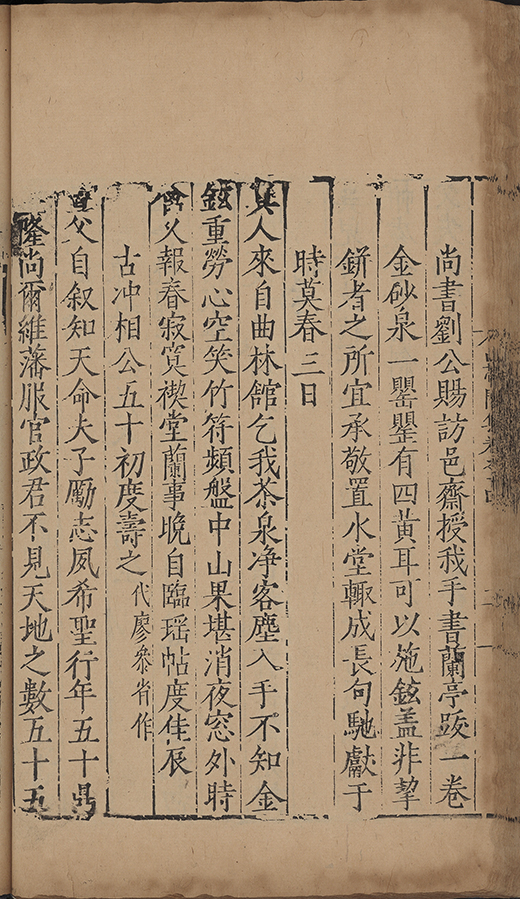 尚書劉公賜訪邑齋授我手書蘭亭跋一卷
金砂泉一罌罌有四黃耳可以施鉉盖非挈
缾者之所宜承敬置水堂輙成長句馳獻于
時莫春三日
真人來自曲林館乞我茶泉净客塵入手不知金
鉉重勞心空笑竹符頻盤中山果堪消夜窓外時
禽又報春寂寞禊堂蘭事晚自臨瑶帖度佳辰
古冲相公五十初度壽之代廖叅省作
尼父自叙知天命夫子勵志夙希聖行年五十鼎
隆尚爾維藩服官政君不見天地之數五十五